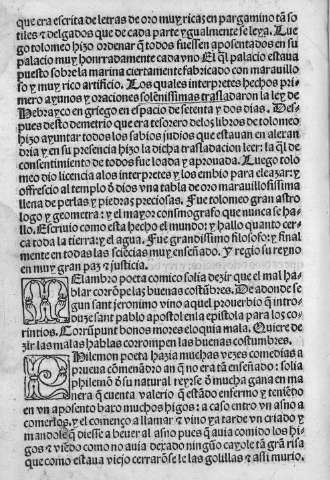 que era escrita de letras de oro muy ricas en pargamino tã so
tiles ⁊ delgados que de cada parte ygualmente se leya. Lue
go tolomeo hizo ordenar q̃ todos fuessen aposentados en su
palacio muy honrradamente cada vno El q̃l palacio estaua
puesto sobre la marina ciertamente fabricado con marauillo
so y muy rico artificio. Los quales interpretes hechos pri
mero ayunos y oraciones solẽnissimas trasladaron la ley de
Hebrayco en griego en espacio de setenta y dos dias. Des-
pues desto demetrio que era tesorero delos libros de tolomeo
hizo ayuntar todos los sabios judios que estauan en alexan
dria y en su presencia hizo la dicha trasladacion leer: la q̃l de
consentimiento de todos fue loada y aprouada. Luego tolo
meo dio licencia alos interpretes y los embio para eleazar: y
offrescio al templo d̃ dios vna tabla de oro marauillosissima
llena de perlas y piedras preciosas. Fue tolomeo gran astro
logo y geometra: y el mayor consmografo que nunca se ha-
llo. Escriuio como esta hecho el mundo: y hallo quanto cer-
ca toda la tierra: y el agua. Fue grandissimo filosofo: y final
mente en todas las sciẽcias muy enseñado. Y regio su reyno
en muy gran paz ⁊ justicia.
MElambro poeta comico solia dezir que el mal ha
blar corrõpe las buenas costũbres. De adonde se
gun sant jeronimo vino aquel prouerbio q̃ intro-
duze sant pablo apostol en la epistola para los co-
rintios. Corrũpunt bonos mores eloquia mala. Quiere de
zir las malas hablas corrompen las buenas costumbres.
PHilemon poeta hazia muchas vezes comedias a
prueua cõmenãdro an q̃ no era tã enseñado: solia
philemõ d̃ su natural reyrse d̃ mucha gana en ma
nera q̃ cuenta valerio q̃ estãdo enfermo y teniẽdo
en vn aposento baxo muchos higos: a caso entro vn asno a
comerlos, y el començo a llamar ⁊ vino ya tarde vn criado y
mandole q̃ diesse a beuer al asno pues q̃ auia comido los hi-
gos ⁊ viẽdo como no auia dexado ningũo cayole tã grã risa
que como estaua viejo cerrarõse le las golillas ⁊ assi murio.